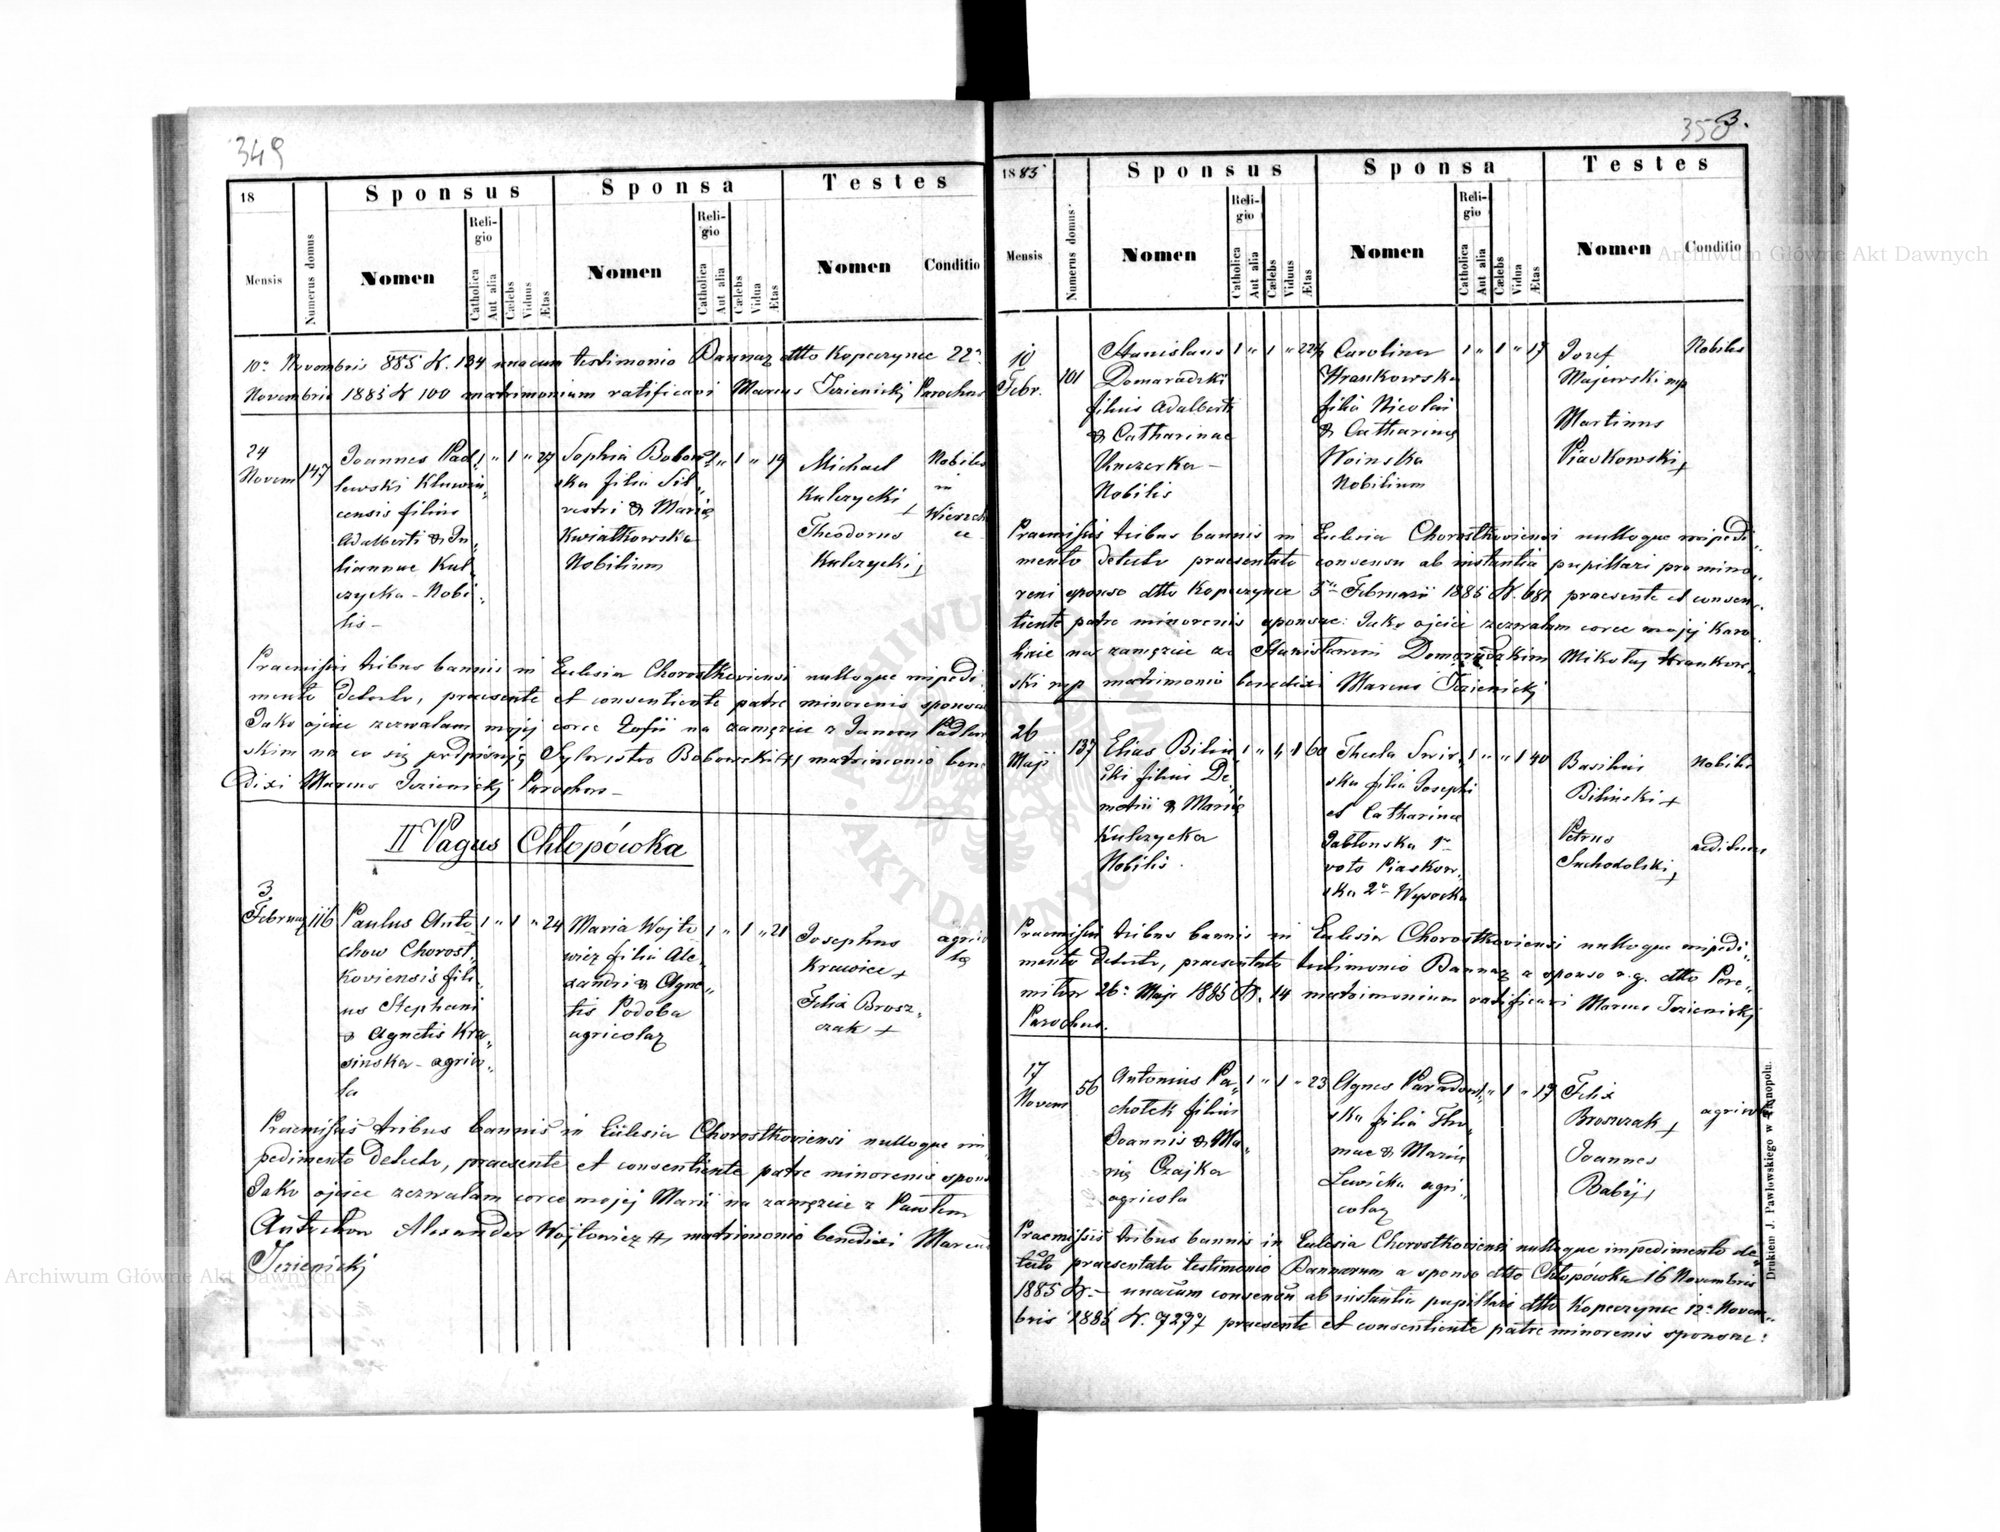 349
18
Mensis
Numerus domus
Sponsus
Nomen
Religio
Catholica
Aut alia
Cælebs
Viduus
Ætas
Sponsa
Nomen
Religio
Catholica
Aut alia
Cælebs
Vidua
Ætas
Testes
Nomen
Conditio
10a Novembris 885 N. 134 unacum testimonio Bannar dtto Kopeczynce 22a
Novembris 1885 N 100 matrimonium ratificavi Marcus Jezienickj Parochus
24
Novem
147
Joannes Pad„
lewski Kluwin„
censis filius
Adalberti & Ju„
liannae Kul„
czycka - Nobi„
lis -
1 „ 1 „ 27
Sophia Bobow„
ska filia Sil„
vestri & Maria
Kwiatkowska
Nobilium
1 „ 1 „ 19
Michael
Kulczycki
+
Theodorus
Kulczycki +
Nobiles
in
Praemissis tribus bannis in Eclesia Chorostkoviensi nulloque impedi„
mento detecto, praesente et consentiente patre minorenis sponsae
Jako ojciec zezwalam mojej corce Zofii na zamęzcie z Janem Padlew
skim na co się podpisuję Sylwester Bobowski matrimonio bene
dixi Marcus Jezienickj Parochus -
II Vagus Chłopówka
3
Februar
116
Paulus Anto
chow Chorost„
koviensis fili„
us Stephani
& Agnetis Kra„
sinska - agrico„
la
1 „ 1 „ 24
Maria Wojto
wicz filia Ale„
xandri & Agne„
tis Podoba
agricolar
1 „ 1 „ 21
Josephus
Krawiec +
Felix Brosz„
czak +
agrico
la
Praemissis tribus bannis in Eclesia Chorostkoviensi nulloque im„
pedimento detecto, praesente et consentiente patre minorenis spons
Jako ojciec zezwalam corce mojej Marii na zamęzcie z Pawłem
Antochow Alexander Wojtowicz matrimonio benedixi Marcus
Jezienickj
350
3.
1885
Mensis
Numerus domus
Sponsus
Nomen
Religio
Catholica
Aut alia
Cælebs
Viduus
Ætas
Sponsa
Nomen
Religio
Catholica
Aut alia
Cælebs
Vidua
Ætas
Testes
Nomen
Conditio
10
Febr.
101
Stanislaus
Domaradzki
filius Adalberti
& Catharinae
Kuczerka -
Nobilis
1 „ 1 „
Carolina
Hrankowska
filia Nicolai
& Catharina
Woinska
Nobilium
1 „ 1 „ 17
Jozef
Majewski mp
Martinus
Piaskowski +
Nobiles
Praemissis tribus bannis in Eclesia Chorostkoviensi nulloque impedi„
mento detecto praesentato consensu ab instantia pupillari pro mino„
reni sponso dtto Kopeczynce 5a Februarii 1885 N. 687 praesente et consen„
tiente patre minorenis sponsae: Jako ojciec zezwalam corce mojej Karo„
linie na zamęzcie ze Stanisławem Domaradzkim Mikołaj Hrankow„
ski mp matrimonio benedixi Marcus Jezienickj
26
Maji
137
Elias Bilin„
ski filius De„
metrii & Maria
Kulczycka
Nobilis.
1 „ „ 1 60
Thecla Swir„
ska filia Josephi
et Catharinae
Jablonska 1o
voto Piaskow„
ska 2o Wysocka
1 „ „ 1 40
Basilius
Bilinski +
Petrus
Suchodolski +
Nobilis
Praemissis tribus bannis in Eclesia Chorostkoviensi nulloque impedi„
mento detecto, praesentato testimonio Bannar a sponso r. g. dtto Pere„
milow 26a Maji 1885 N. 14 matrimonium ratificavi Marcus Jezienickj
Parochus.
17
Novem
56
Antonius Pa„
cholek filius
Joannis & Ma„
ria Czajka
agricola
1 „ 1 „ 23
Agnes Paradow„
ska filia Tho„
mae & Maria
Lewicka agri„
colar
1 „ 1 „ 17
Felix
Broszczak +
Joannes
Babij +
agricola
Praemissis tribus bannis in Eclesia Chorostkoviensi nulloque impedimento de„
tecto praesentato testimonio Bannarum a sponso dtto Chłopówka 16 Novembris
1885 N. - unacum consensu ab instantia pupillari dtto Kopeczynce 12a Novem„
bris 1885 N. 7237 praesente et consentiente patre minorenis sponsae:
Drukiem J. Pawłowskiego w Tarnopolu.
Archiwum Główne Akt Dawnych
Archiwum Główne Akt Dawnych
ARCHIWUM GŁÓWNE AKT DAWNYCH